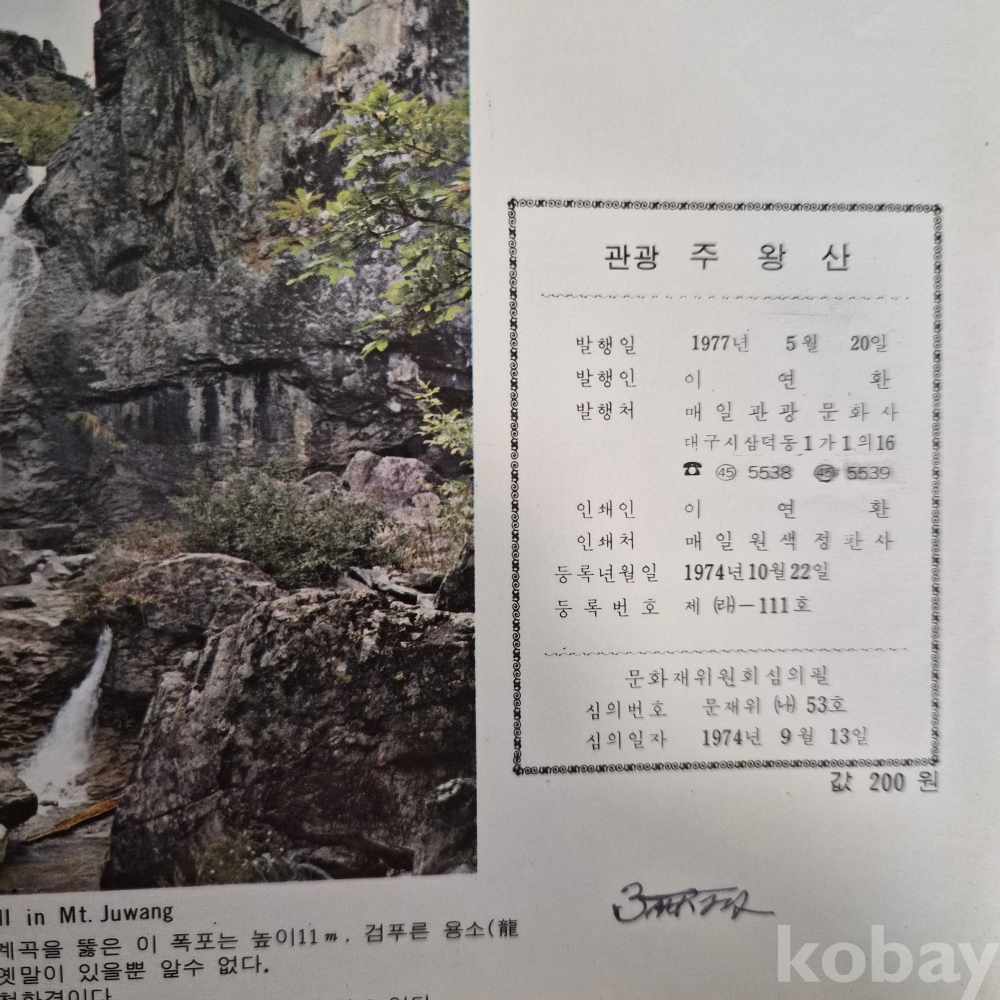 관광 주 왕 산
발행일 1977년 5월 20일
발행인 이 연 환
발행처 매 일 관 광 문 화 사
대구시삼덕동1가1의16
☎ ㊺ 5538 ㊺ 5539
인쇄인 이 연 환
인쇄처 매 일 원 색 정 판 사
등록년월일 1974년10월22일
등 록 번 호 제 (래)-111호
문화재위원회심의필
심의번호 문재위 (나) 53호
심의일자 1974년 9월 13일
값 200 원
ll in Mt. Juwang
계곡을 뚫은 이 폭포는 높이11m. 검푸른 용소(龍
옛말이 있을뿐 알수 없다.
kobay